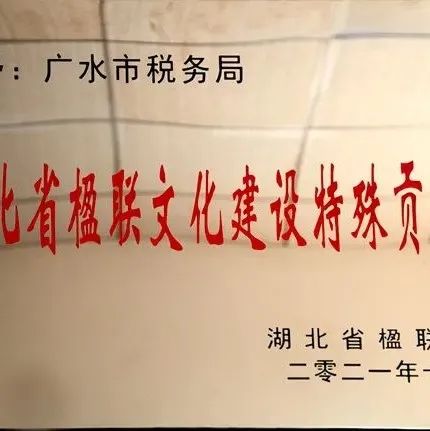 ：广水市税务局
北省楹联文化建设特殊贡
湖北省楹联
二零二一年十